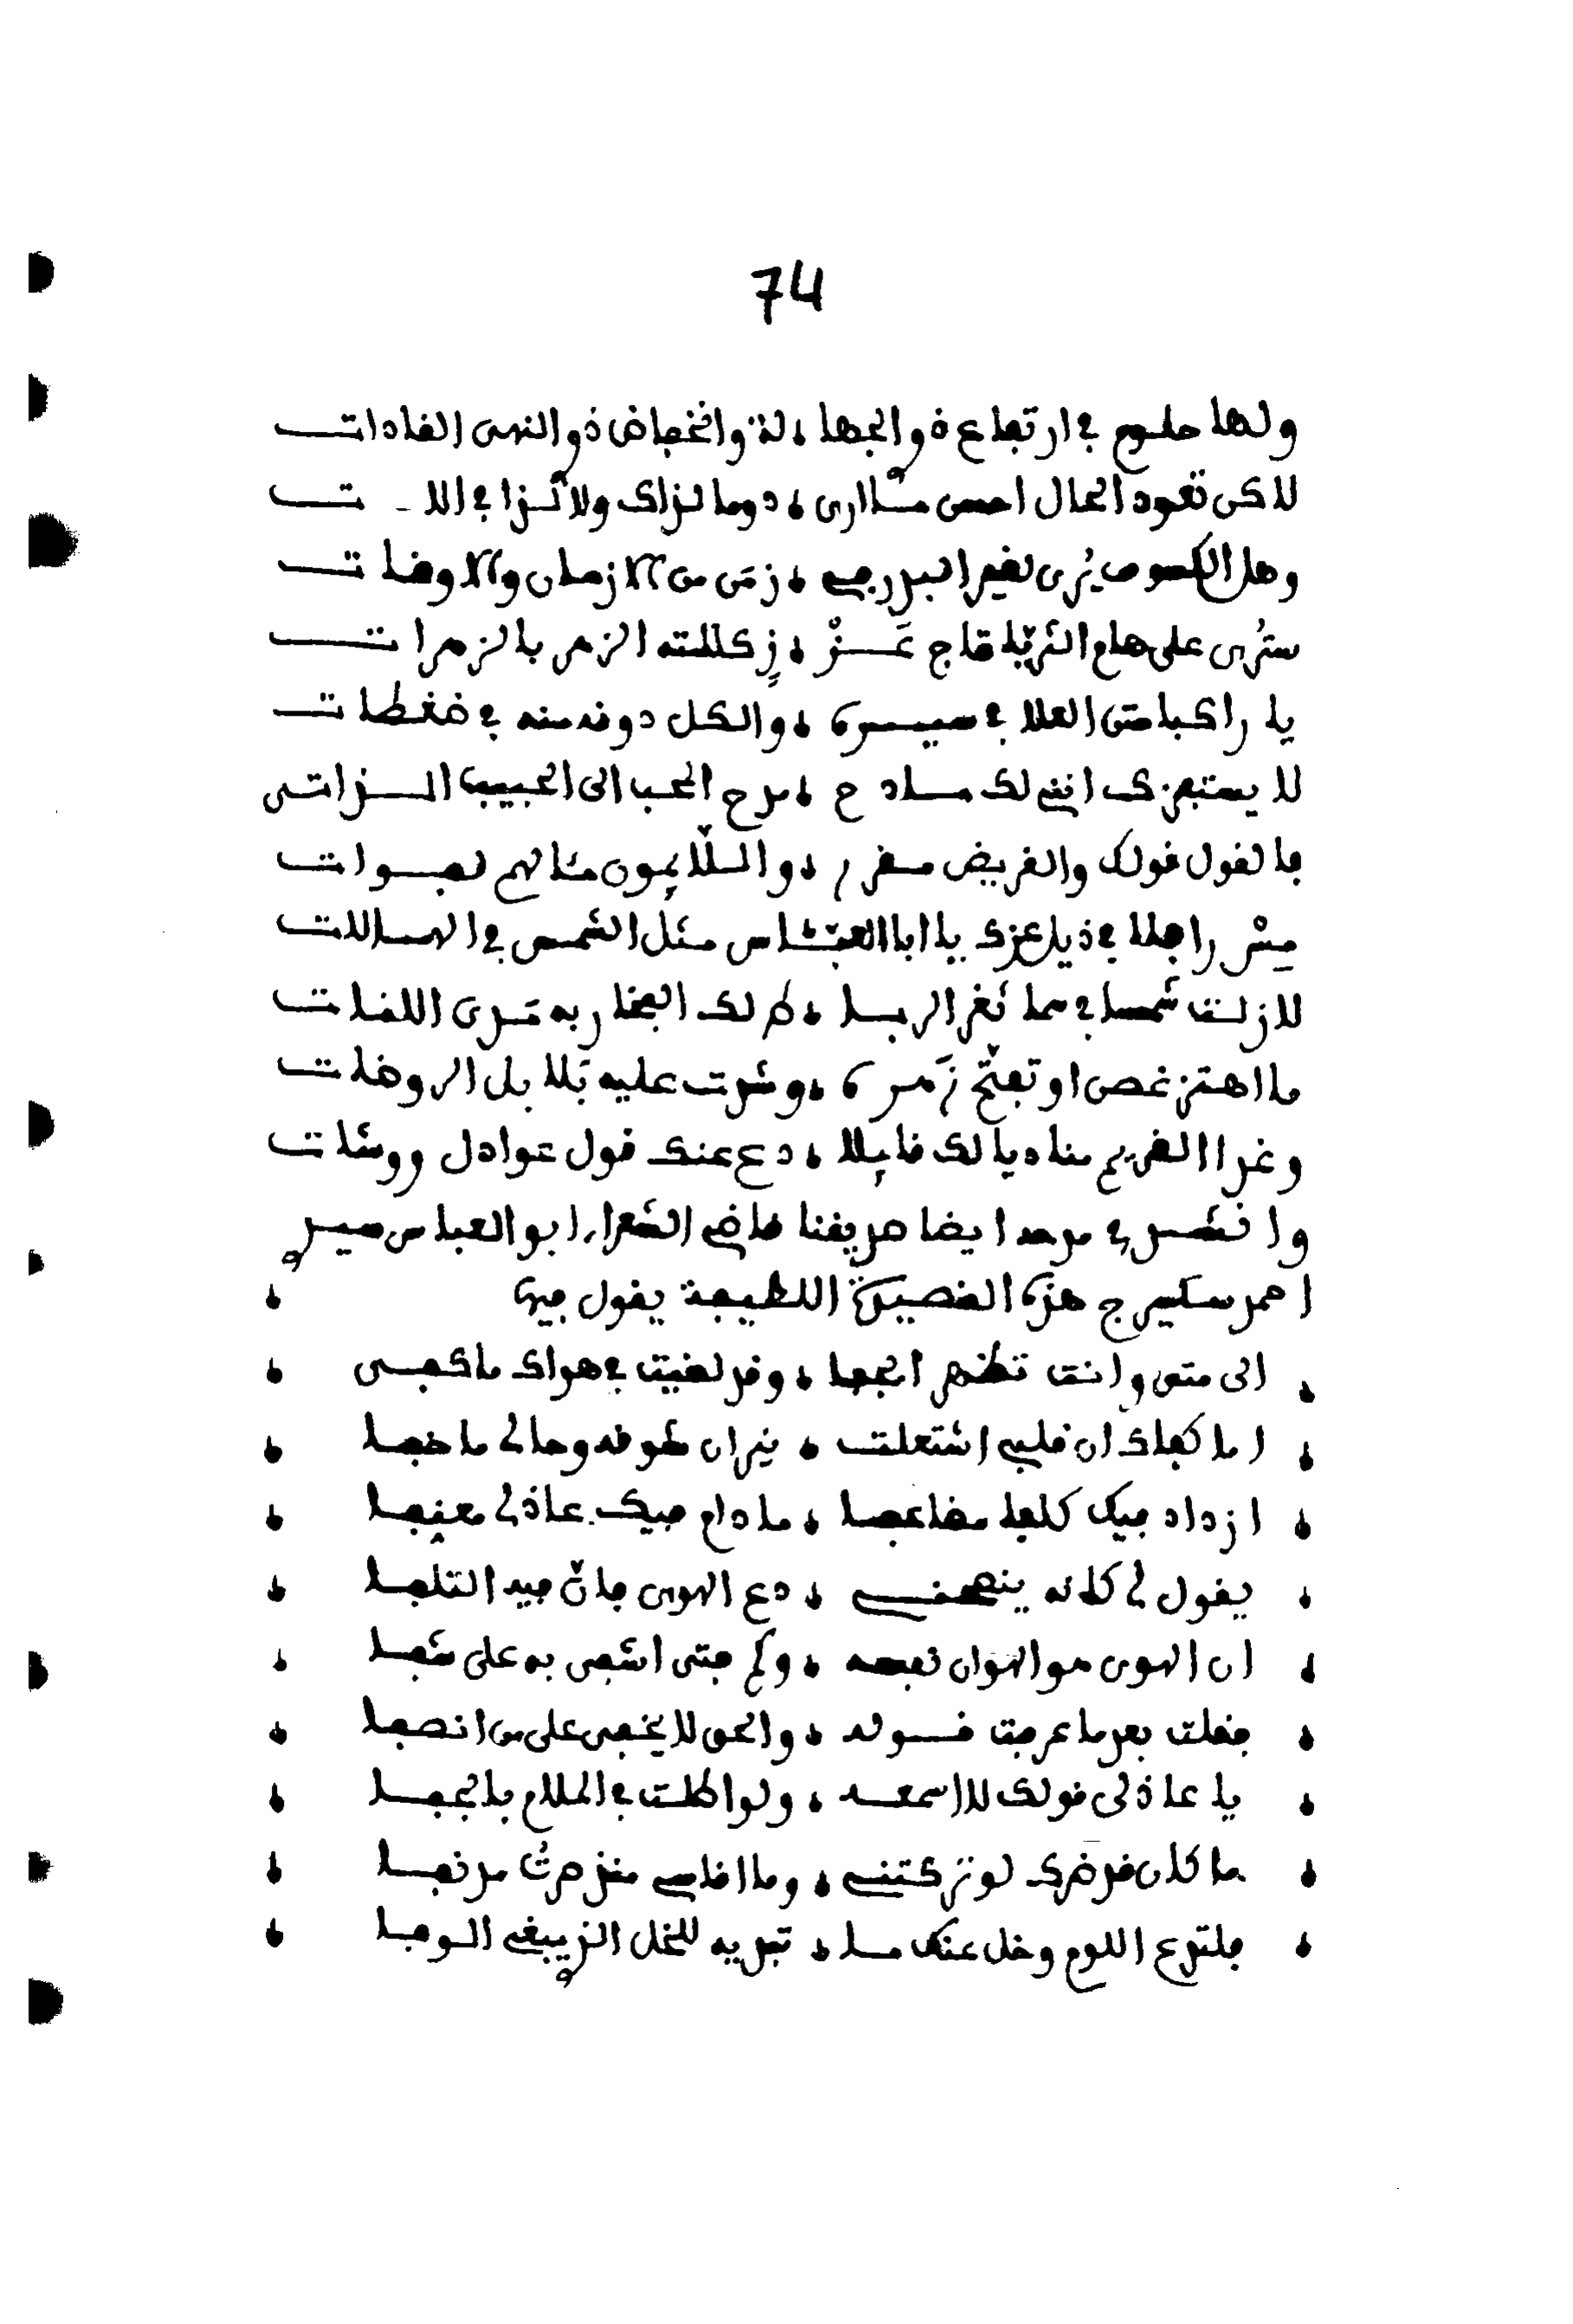 74
ولها حلوم في ارتفاع ذو الجها لة وانخفاض ذو النهى القادات
لاكن تعود الحال احسن مثلا ارى دوما لذاك ولا كذا في اللا ت
وهل الكسوف يُرى لغير البدر في زمن من الازمان والاوقات
ستُرى على هام الثريّا تاج عَز زٍ كللته الزهر بالزهرات
يا راكبا متن العلا في سيره والكل دونه منه في ضغطات
لا يستفزك انني لك مادح مدح المحب الى الحبيب الذاتي
فالقول قولك والقريض مقرر واللّائمون مثالهم لصوات
مِسْ رافلا في ذيل عزك يا ابا العبّاس مثل الشمس في الهالات
لازلت شمسا في سما ثغر الربا ط لك الفخار به مَدى اللغات
ما اهتز غصن او تفتّح زَهره وشدت عليه بَلابل الروضات
وغدا الغريم مناديا لك قائلا دع عنك قول عوادل ووشات
وانشدني مدحه ايضا صديقنا قاضي الشعراء ابو العباس سيدي
احمد سكيرج هذه القصيدة اللطيفة يقول فيها
الى متى وانت تظهر الجفا وقد لقيت في هواك ما كفى
اما كفاك ان قلبي اشتعلت نيران شوقه وحالي ما خفا
ازداد فيك كلفا مضاعفا ما دام فيك عاذلي معنِفا
يقول لي كانه ينصحني دع الهوى فانّ فيه التلفا
ان الهوى هو الهوان نفسه وكم فتى اشفى به على شفا
فقلت بعد ما عرفت قوله والحق لا يخفى على من انصفا
يا عاذلي قولك لا اسمعه ولو اطلت في الملام بالجفا
ما كان قد ضرك لو تركتني وما اقاسي منذ صرتُ مدنفا
فلتدع اللوم وخل عنك ما تبديه للخل الذي يبغي الوفا